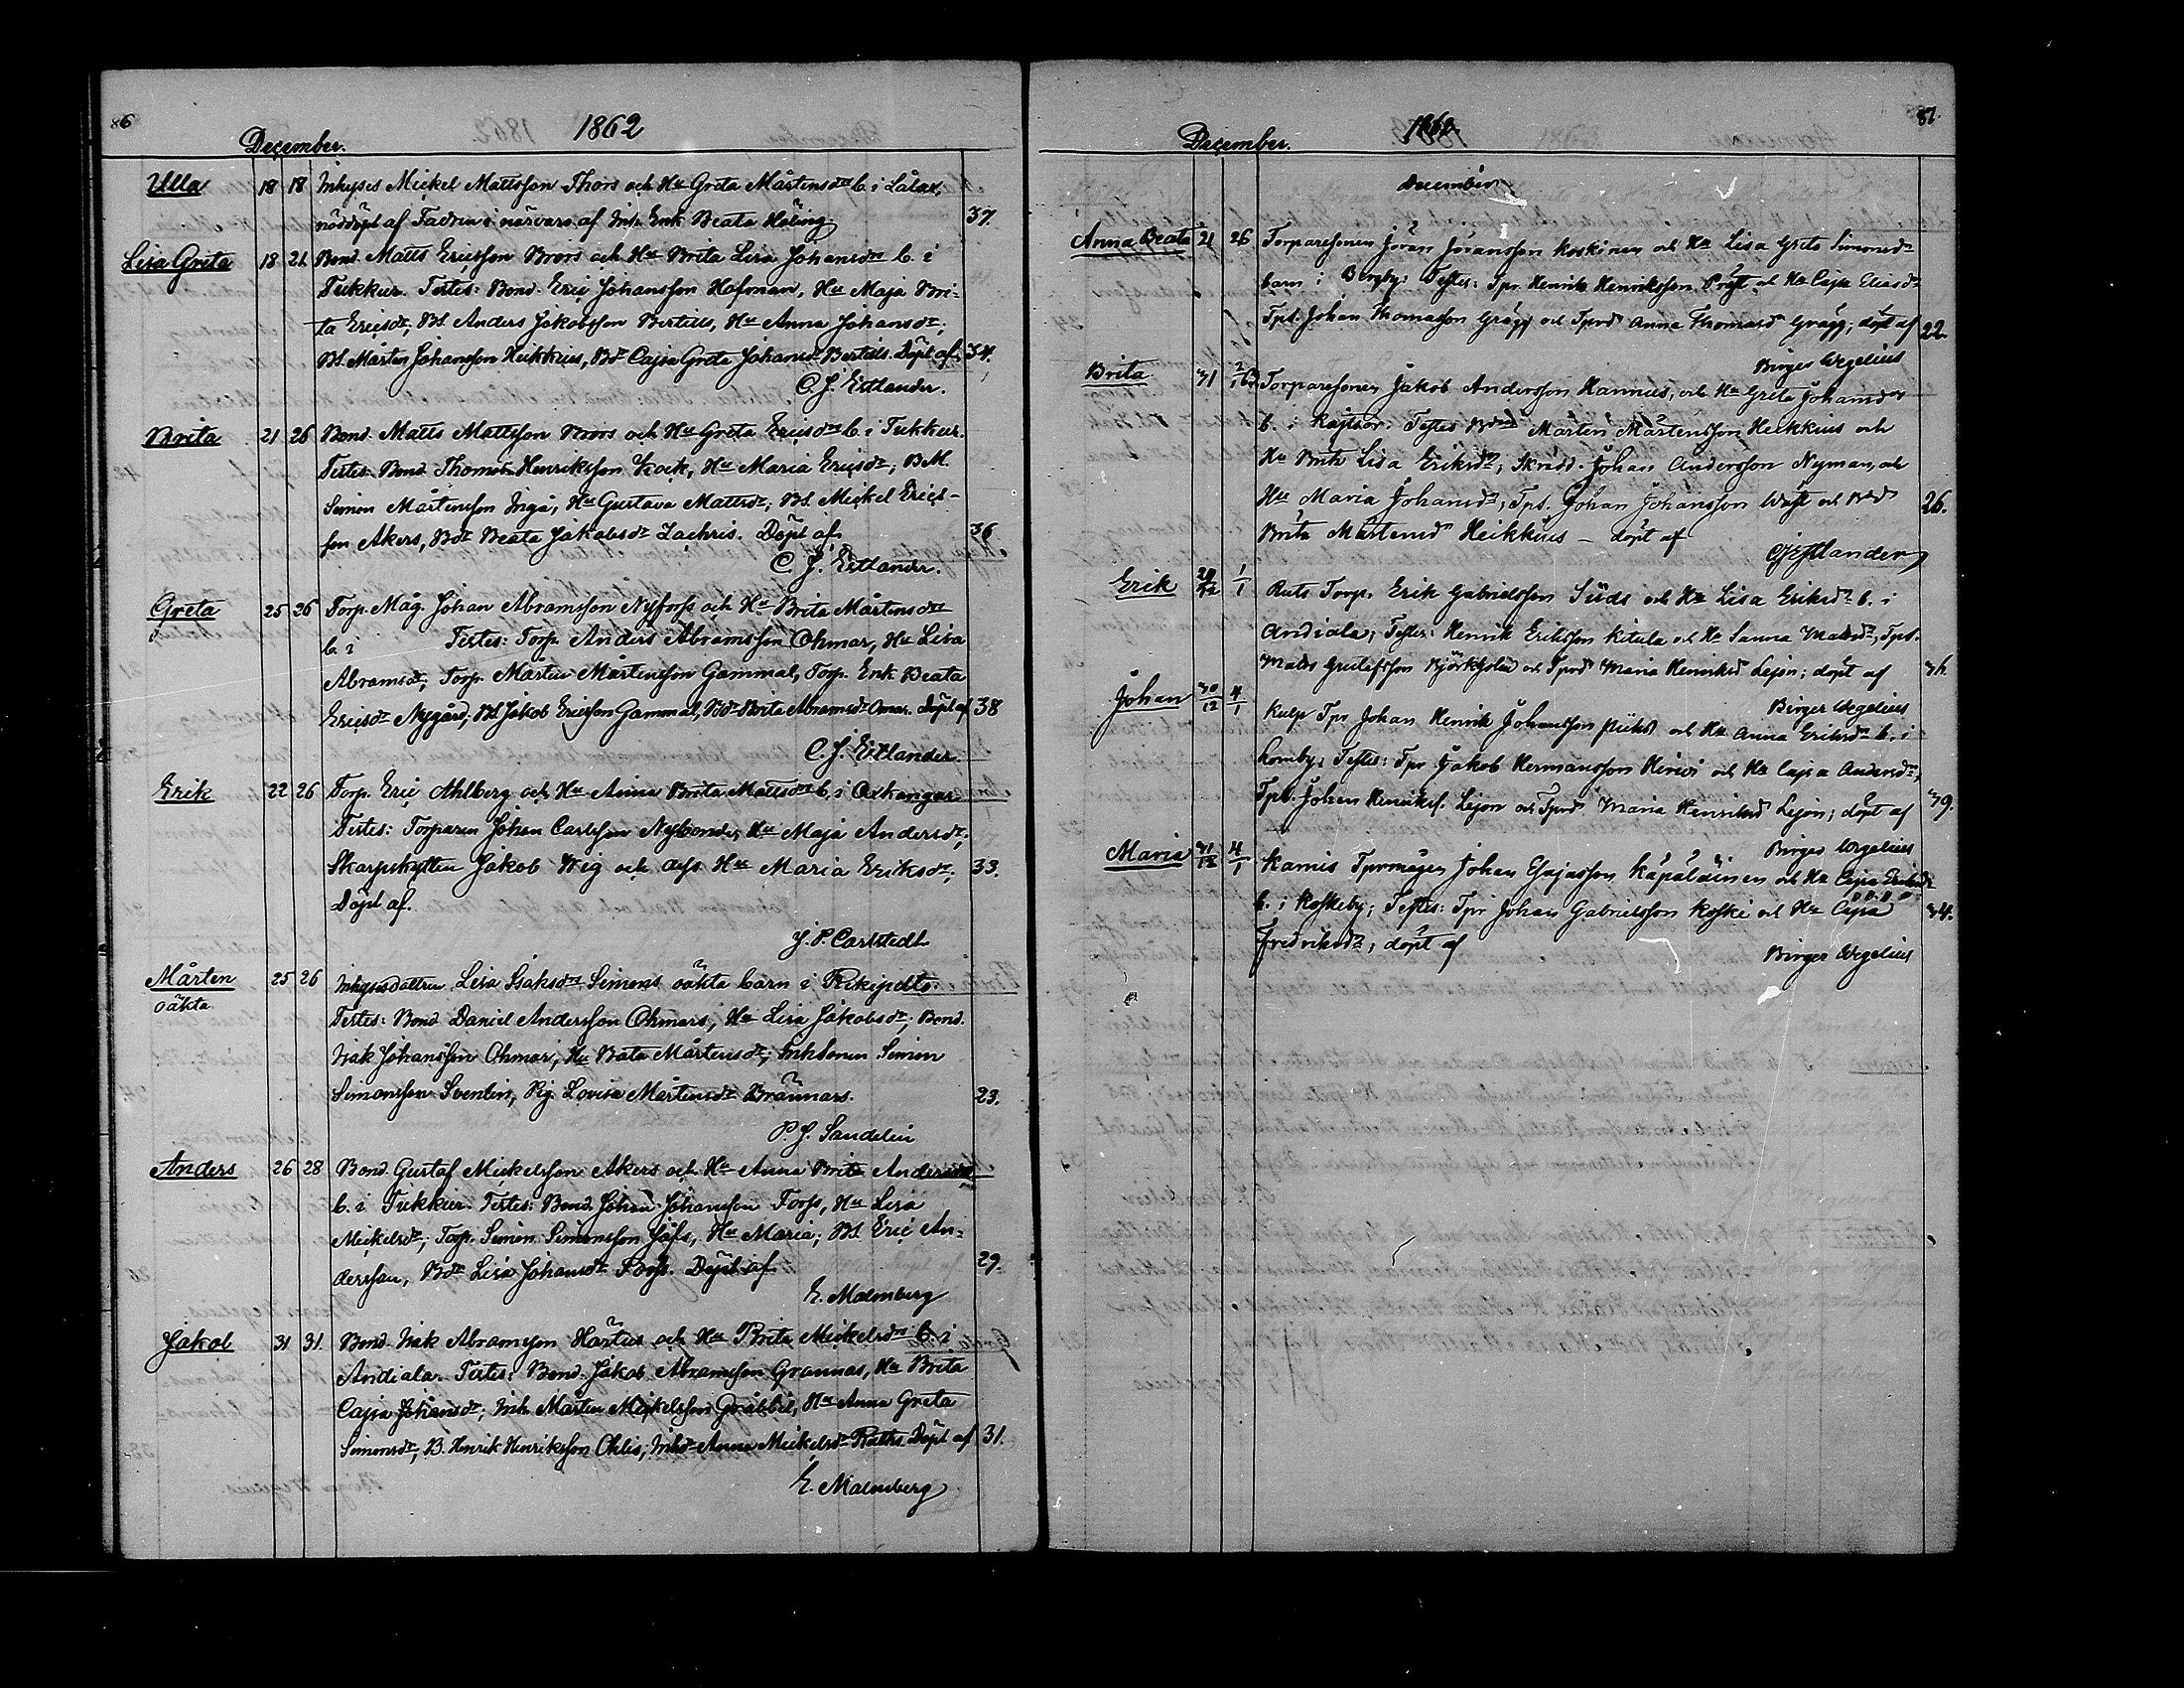 86
1862
December.
Ulla 18 18 Inhyses Mickel Mattsson Thors och Hu Greta Mårtensdr b. i Lålax,
nöddöpt af Fadren i närvaro af Inh. Enk. Beata Häling 37.
Lisa Greta 18 21. Bond. Matts Ericsson Brors och Hu Brita Lisa Johansdr b. i
Tukkur. Testes: Bond. Eric Johansson Hofman, Hu Maja Bri-
ta Ericsdr; BS. Anders Jakobsson Bertills, Hu Anna Johansdr;
BS. Mårten Johansson Heikkius, Bdr Cajsa Greta Johansdr Bertills. Döpt af 34.
C. J. Estlander.
Brita 21 26 Bond. Matts Mattsson Brors och Hu Greta Ericsdr b. i Tukkur.
Testes: Bond. Thomas Henriksson Kock, Hu Maria Ericsdr; BM.
Simon Mårtensson Inga, Hu Gustava Mattsdr; BS. Mickel Erics-
son Akers, Bdr Beata Jakobsdr Zachris. Döpt af 36
C. J. Estlander.
Greta 25 26 Torp. Måg. Johan Abramsson Nyforss och Hu Brita Mårtensdr
b. i Testes: Torp. Anders Abramsson Ohmar, Hu Lisa
Abramsdr; Torp. Mårten Mårtensson Gammal, Torp. Enk. Beata
Ericsdr Nygård; BS. Jakob Ericsson Gammal, Bdr Brita Abramsdr Omar. Döpt af 38
C. J. Estlander.
Erik 22 26 Torp. Eric Ahlberg och Hu Anna Brita Mattsdr b. i Oxkangar
Testes: Torparen Johan Carlsson Nybonde, Hu Maja Andersdr;
Skarpskytten Jakob Weg och dess Hu Maria Eriksdr; 33.
Döpt af.
J. P. Carlstedt
Mårten 25 26 Inhysesdottren Lisa Isaksdr Simons oäkta barn i Rekipelto.
oäkta
Testes: Bond. Daniel Andersson Ohmars, Hu Lisa Jakobsdr; Bond.
Isak Johansson Ohmar, Hu Bata Mårtensdr; Inhsonen Simon
Simonsson Sventin, Pig. Lovisa Mårtensdr Brännars. 23.
P. J. Sandelin
Anders 26 28 Bond. Gustaf Mickelsson Akers och Hu Anna Brita Andersdr
b. i Tukkur. Testes: Bond. Johan Johansson Forss, Hu Lisa
Mickelsdr; Torp. Simon Simonsson Jåfs, Hu Maria; BS. Eric An-
dersson, Bdr Lisa Johansdr Forss. Döpt af 29.
E. Malmberg
Jakob 31 31. Bond. Isak Abramsson Härtus och Hu Brita Mickelsdr b. i
Andiala. Testes: Bond. Jakob Abramsson Grannas, Hu Brita
Cajsa Johansdr; Inh. Mårten Mickelsson Gräbbil, Hu Anna Greta
Simonsdr; B. Henrik Henriksson Ohlis, Inhdr Anna Mickelsdr Raths. Döpt af 31.
E. Malmberg
87.
1862.
December.
December
Anna Beata 21 26 Torparesonen Jöran Jöransson Koskinen och Hu Lisa Greta Simonsdr
barn i Bergby; Testes: Tpr. Henrik Henriksson Präst och Hu Cajsa Eliasdr
Tps. Johan Thomasson Grägg och Tprdr Anna Thomasdr Grägg; döpt af 22.
Birger Wegelius
Brita 31 2/1 63 Torparesonen Jakob Andersson Hannus, och Hu Greta Johansdr
b. i Kaitsor. Testes Bond Mårten Mårtensson Heikkius och
Hu Brita Lisa Eriksdr; Skrädd. Johan Andersson Nyman, och
Hu Maria Johansdr; Tps. Johan Johansson Wäst och Bdr
Brita Mårtensdr Heikkius – döpt af 26.
CJEstlander
Erik 29/12 1/1 Ruts Torp. Erik Gabrielsson Süds och Hu Lisa Eriksdr b. i
Andiala; Testes: Henrik Eriksson Kitula och Hu Sanna Matsdr, Tps.
Mats Gustafsson Björkholm och Tprdr Maria Henriksdr Lejon; döpt af 36.
Birger Wegelius
Johan 30/12 4/1 Kulp Tpr Johan Henrik Johansson och Hu Anna Eriksdr b. i
Komby; Testes: Tpr Jakob Hermansson Hirvi och Hu Cajsa Andersdr,
Tps. Johan Henriks. Lejon och Tprdr Maria Henriksdr Lejon; döpt af 39.
Birger Wegelius
Maria 31/12 4/1 Kamis Tprmågen Johan Esajasson Kapaläinen och Hu Cajsa Eriksdr
b. i Koskeby; Testes: Tpr Johan Gabrielsson Koski och Hu Cajsa 34.
Fredriksdr; döpt af
Birger Wegelius